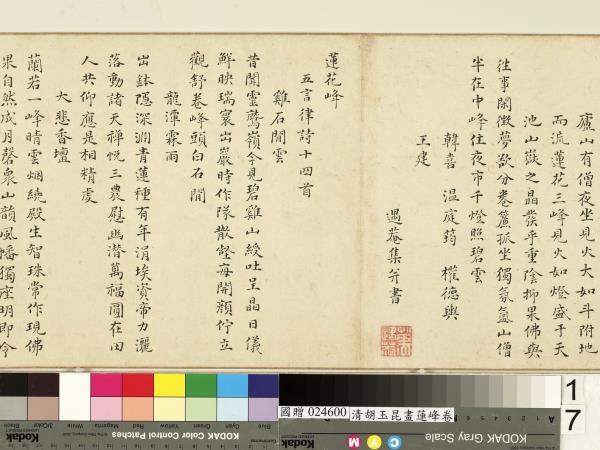 廬山有僧夜坐見火大如斗附地
而流蓮花三峰見火如燈盛于天
池山嶽之晶發乎重陰抑果佛與
往事開微夢欲分卷簾孤坐獨氛氳山僧
半在中峰住夜市千燈照碧雲
韓喜 溫庭筠 權德輿
王建
遇菴集并書
蓮花峰
五言律詩十四首
雞石閒雲
昔聞靈鷲嶺今見碧雞山綬吐呈晶日儀
鮮映瑞寰出巖時作隊散壑每開顏佇立
觀舒卷峰頭白石閒
龍潭霖雨
出鉢隱深澗青蓮種有年涓埃資帝力灑
落動諸天禪悅三農慰幽潛萬福圓在田
人共仰應是相精虔
大悲香壇
蘭若一峰晴雲烟繞殿生智珠常作現佛
果自然成月磬泉山韻風幡獨座明即今
國贈 024600 清胡玉昆畫蓮峰卷
17
Kodak
KODAK Color Control Patches
Blue Cyan Green Yellow Red Magenta White 3/Color Black
KODAK Gray Scale
C Y M
A